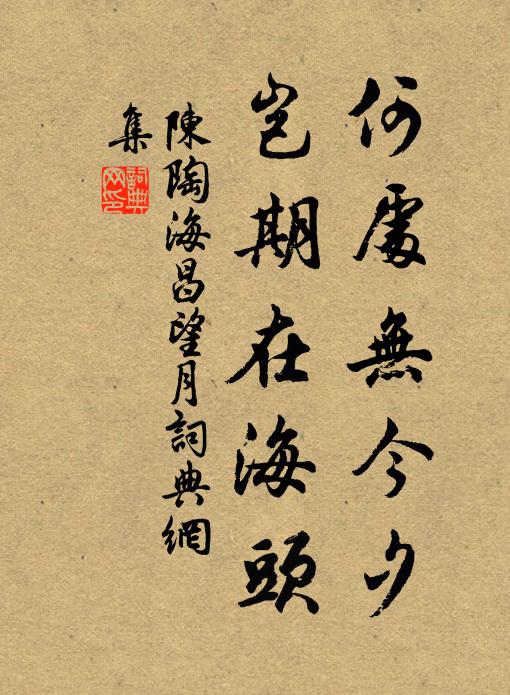 何處無今夕
豈期在海頭
陳陶海昌望月詞典網
集
詞典
网印